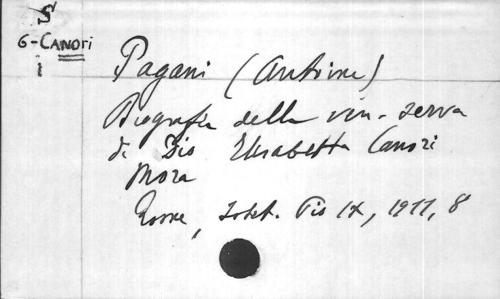 S
6-CANORI
i
Pagani (Antoine)
Biografia della ven. serva
di Dio Elisabetta Canori
Mora
Rome, Instit. Pio IX, 1911, 8